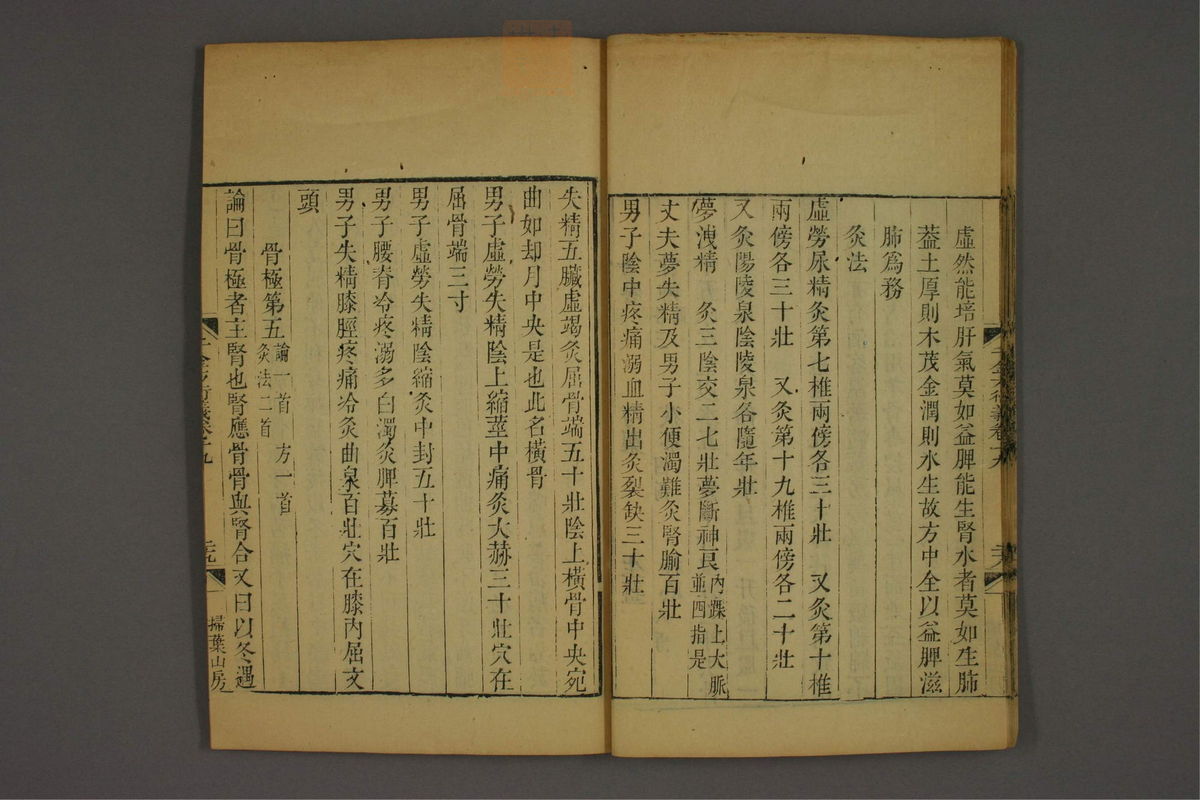 虛然能培肝氣莫如益脾能生腎水者莫如生肺
蓋土厚則木茂金潤則水生故方中全以益脾滋
肺爲務
灸法
虛勞尿精灸第七椎兩傍各三十壯 又灸第十椎
兩傍各三十壯 又灸第十九椎兩傍各二十壯
又灸陽陵泉陰陵泉各隨年壯
夢洩精 灸三陰交二七壯夢斷神良內踝上大脈並四指是
丈夫夢失精及男子小便濁難灸腎腧百壯
男子陰中疼痛溺血精出灸裂缺三十壯
失精五臟虛竭灸屈骨端五十壯陰上橫骨中央宛
曲如却月中央是也此名橫骨
男子虛勞失精陰上縮莖中痛灸大赫三十壯穴在
屈骨端三寸
男子虛勞失精陰縮灸中封五十壯
男子腰脊冷疼溺多白濁灸脾募百壯
男子失精膝脛疼痛冷灸曲泉百壯穴在膝內屈文
頭
骨極第五論一首 方一首灸法二首
論曰骨極者主腎也腎應骨骨與腎合又曰以冬遇
掃葉山房